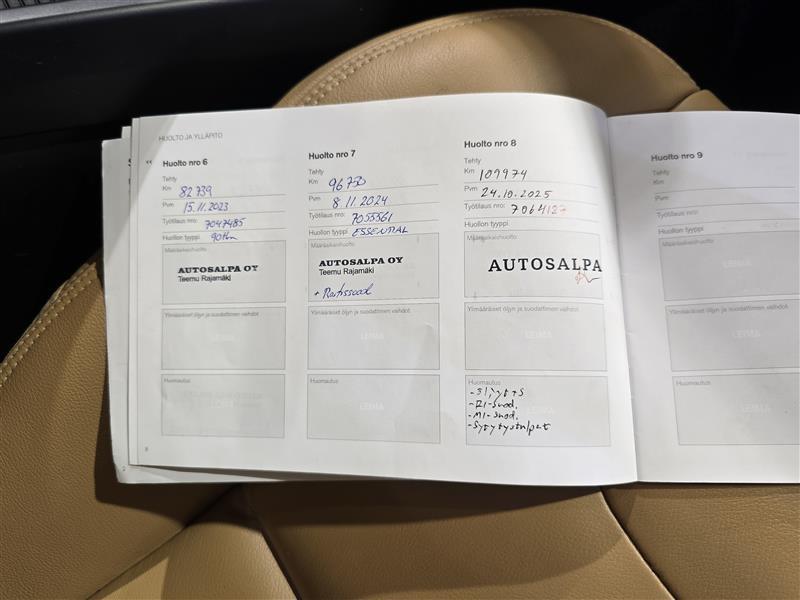 HUOLTO JA YLLÄPITO
Huolto nro 6
Tehty
Km 82 739
Pvm 15.11.2023
Työtilaus nro: 7047485
Huollon tyyppi
Määräaikaishuolto
AUTOSALPA OY
Teemu Rajamäki
Ylimääräiset öljyn ja suodattimen vaihdot
LEIMA
Huomautus
8
Huolto nro 7
Tehty
Km 96750
Pvm 8.11.2024
Työtilaus nro: 7055561
Huollon tyyppi ESSENTIAL
Määräaikaishuolto
AUTOSALPA OY
Teemu Rajamäki
+ Raitissuod
Ylimääräiset öljyn ja suodattimen vaihdot
LEIMA
Huomautus
LEIMA
Huolto nro 8
Tehty
Km 109974
Pvm 24.10.2025
Työtilaus nro: 7064127
Huollon tyyppi
Määräaikaishuolto
AUTOSALPA
Ylimääräiset öljyn ja suodattimen vaihdot
LEIMA
Huomautus
-RI-suod.
-MI-suod.
Huolto nro 9
Tehty
Km
Pvm
Työtilaus nro:
Huollon tyyppi
Määräaikaishuolto
LEIMA
Ylimääräiset öljyn ja suodattimen
LEIMA
Huomautus
LEIMA